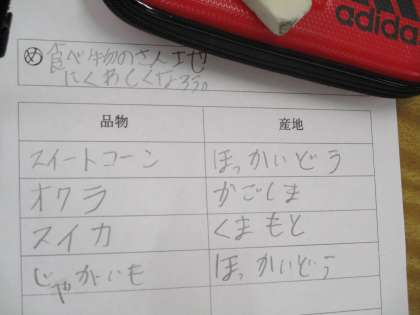 adidas
め 食べ物のさん地
にくわしくなろう。
品物 産地
スイートコーン ほっかいどう
オクラ かごしま
スイカ くまもと
じゃがいも ほっかいどう